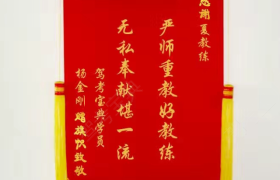 感谢夏教练
严师重教好教练
无私奉献堪一流
驾考宝典学员
杨金刚 赠旗致敬